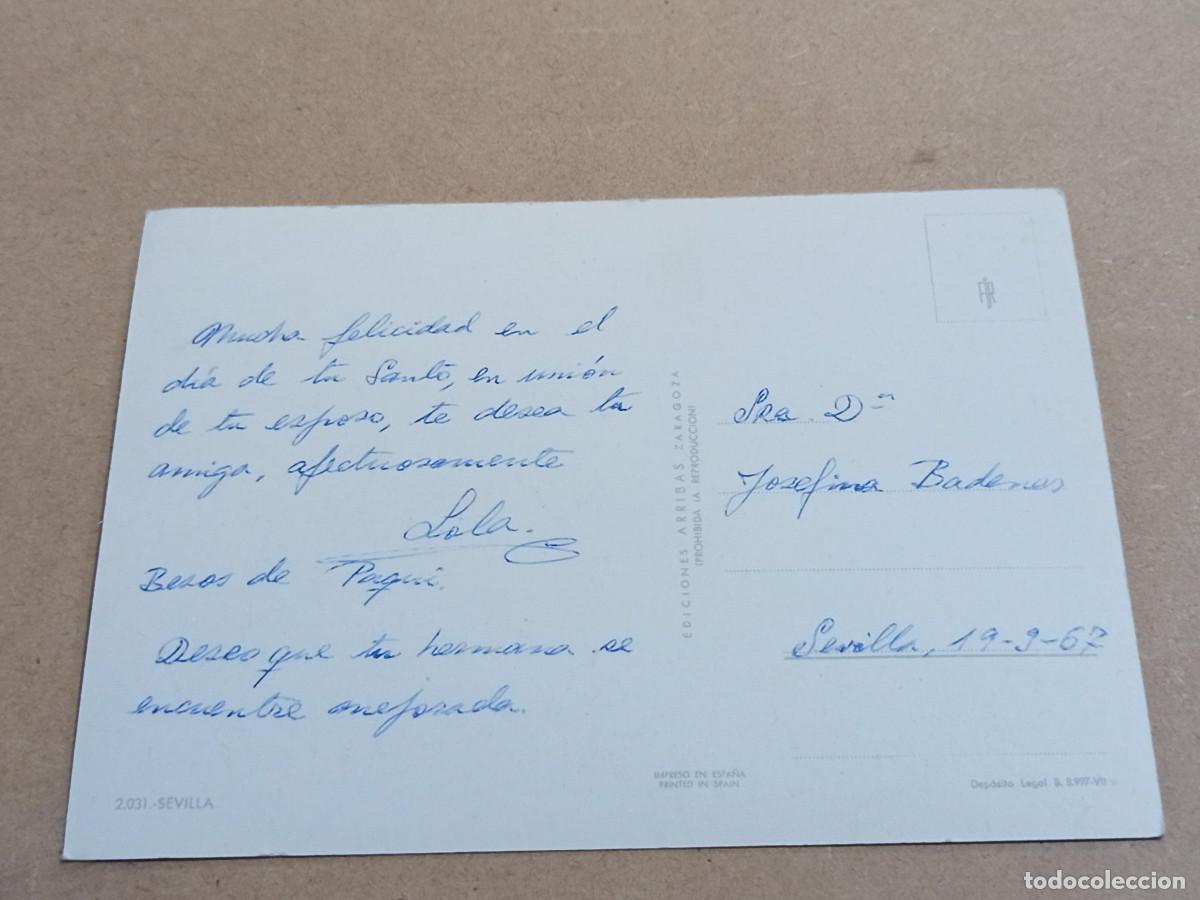 Mucha felicidad en el
día de tu Santo, en unión
de tu esposo, te desea tu
amiga, afectuosamente
Lola.
Besos de Paqui.
Deseo que tu hermana se
encuentre mejorada.
2.031.-SEVILLA
EDICIONES ARRIBAS ZARAGOZA
(PROHIBIDA LA REPRODUCCION)
IMPRESO EN ESPAÑA
PRINTED IN SPAIN
Sra. Dª
Josefina Badenes
Sevilla, 19-9-67
Depósito Legal B. 8.997-VII
todocoleccion